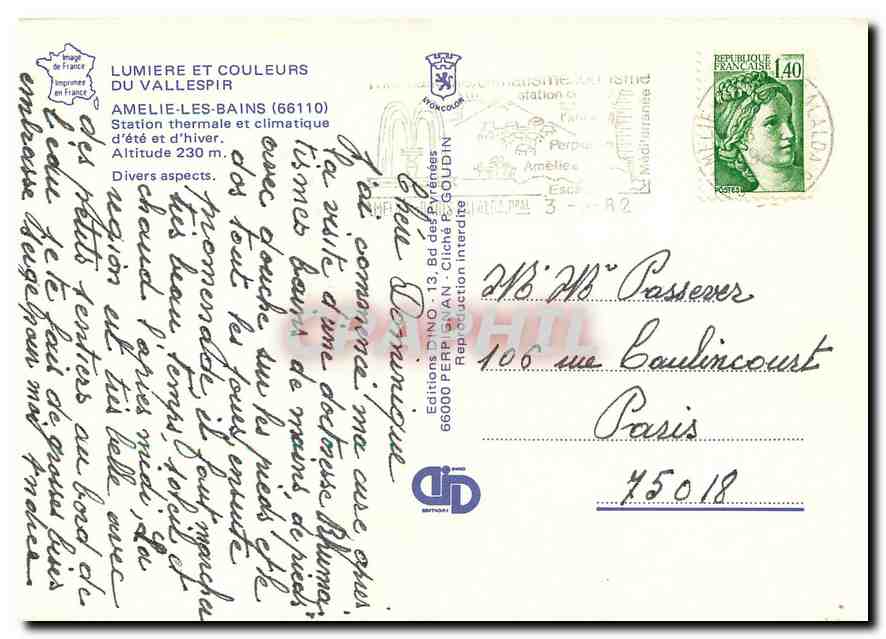 Image
de France
Imprimée
en France
LUMIERE ET COULEURS
DU VALLESPIR
AMELIE-LES-BAINS (66110)
Station thermale et climatique
d'été et d'hiver.
Altitude 230 m.
Divers aspects.
LYONCOLOR
REPUBLIQUE
FRANÇAISE
1,40
POSTES
station
Perpi
Amélie
Esc
Méditerranée
3 - 82
Editions DINO - 13, Bd des Pyrénées
66000 PERPIGNAN - Cliché P. GOUDIN
Reproduction interdite
EDITIONS
CPAPHIL
Mr Me Passever
106 rue Caulincourt
Paris
75018
Chère Dominique
J'ai commencé ma cure après
la visite d'une doctoresse Rhuma-
tismes bains de mains, de pieds
avec douche sur les pieds et le
dos tout les jours, ensuite
promenade il faut marcher
très beau temps, soleil et
chaud l'après midi, la
région est très belle avec
des petits sentiers au bord de
l'eau, je te fais de grosses bises
embrasse